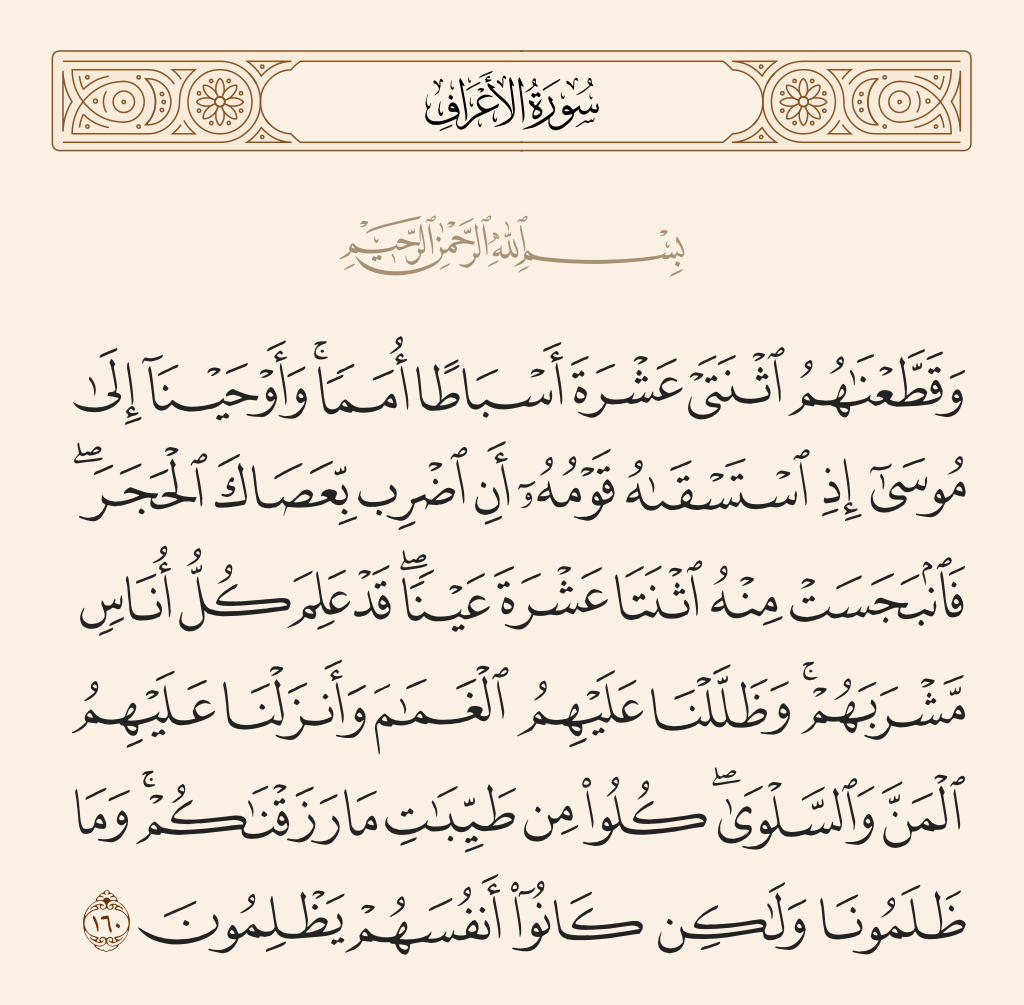 سُورَةُ الأَعْرَافِ
بِسْمِ ٱللَّهِ ٱلرَّحْمَٰنِ ٱلرَّحِيمِ
وَقَطَّعْنَٰهُمُ ٱثْنَتَىْ عَشْرَةَ أَسْبَاطًا أُمَمًۭا ۚ وَأَوْحَيْنَآ إِلَىٰ
مُوسَىٰٓ إِذِ ٱسْتَسْقَىٰهُ قَوْمُهُۥٓ أَنِ ٱضْرِب بِّعَصَاكَ ٱلْحَجَرَ ۖ
فَٱنۢبَجَسَتْ مِنْهُ ٱثْنَتَا عَشْرَةَ عَيْنًۭا ۖ قَدْ عَلِمَ كُلُّ أُنَاسٍۢ
مَّشْرَبَهُمْ ۚ وَظَلَّلْنَا عَلَيْهِمُ ٱلْغَمَٰمَ وَأَنزَلْنَا عَلَيْهِمُ
ٱلْمَنَّ وَٱلسَّلْوَىٰ ۖ كُلُوا۟ مِن طَيِّبَٰتِ مَا رَزَقْنَٰكُمْ ۚ وَمَا
ظَلَمُونَا وَلَٰكِن كَانُوٓا۟ أَنفُسَهُمْ يَظْلِمُونَ ١٦٠